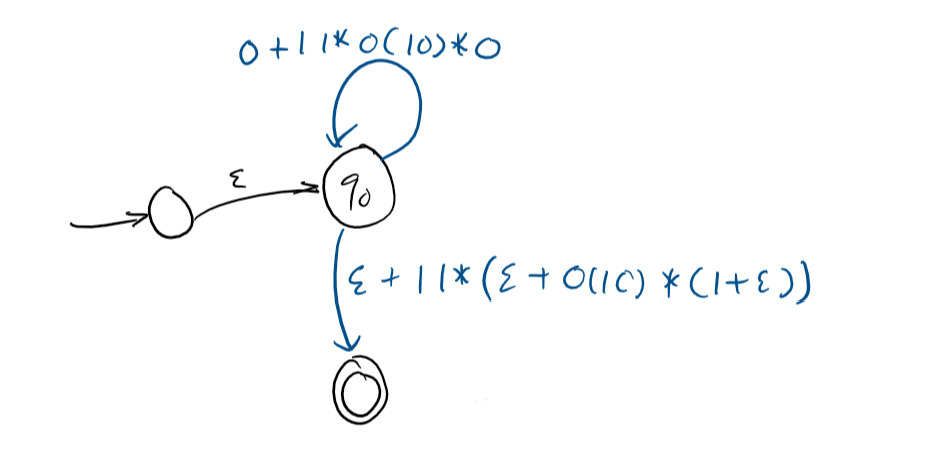 0+11*0(10)*0
ε
q0
ε+11*(ε+0(10)*(1+ε))